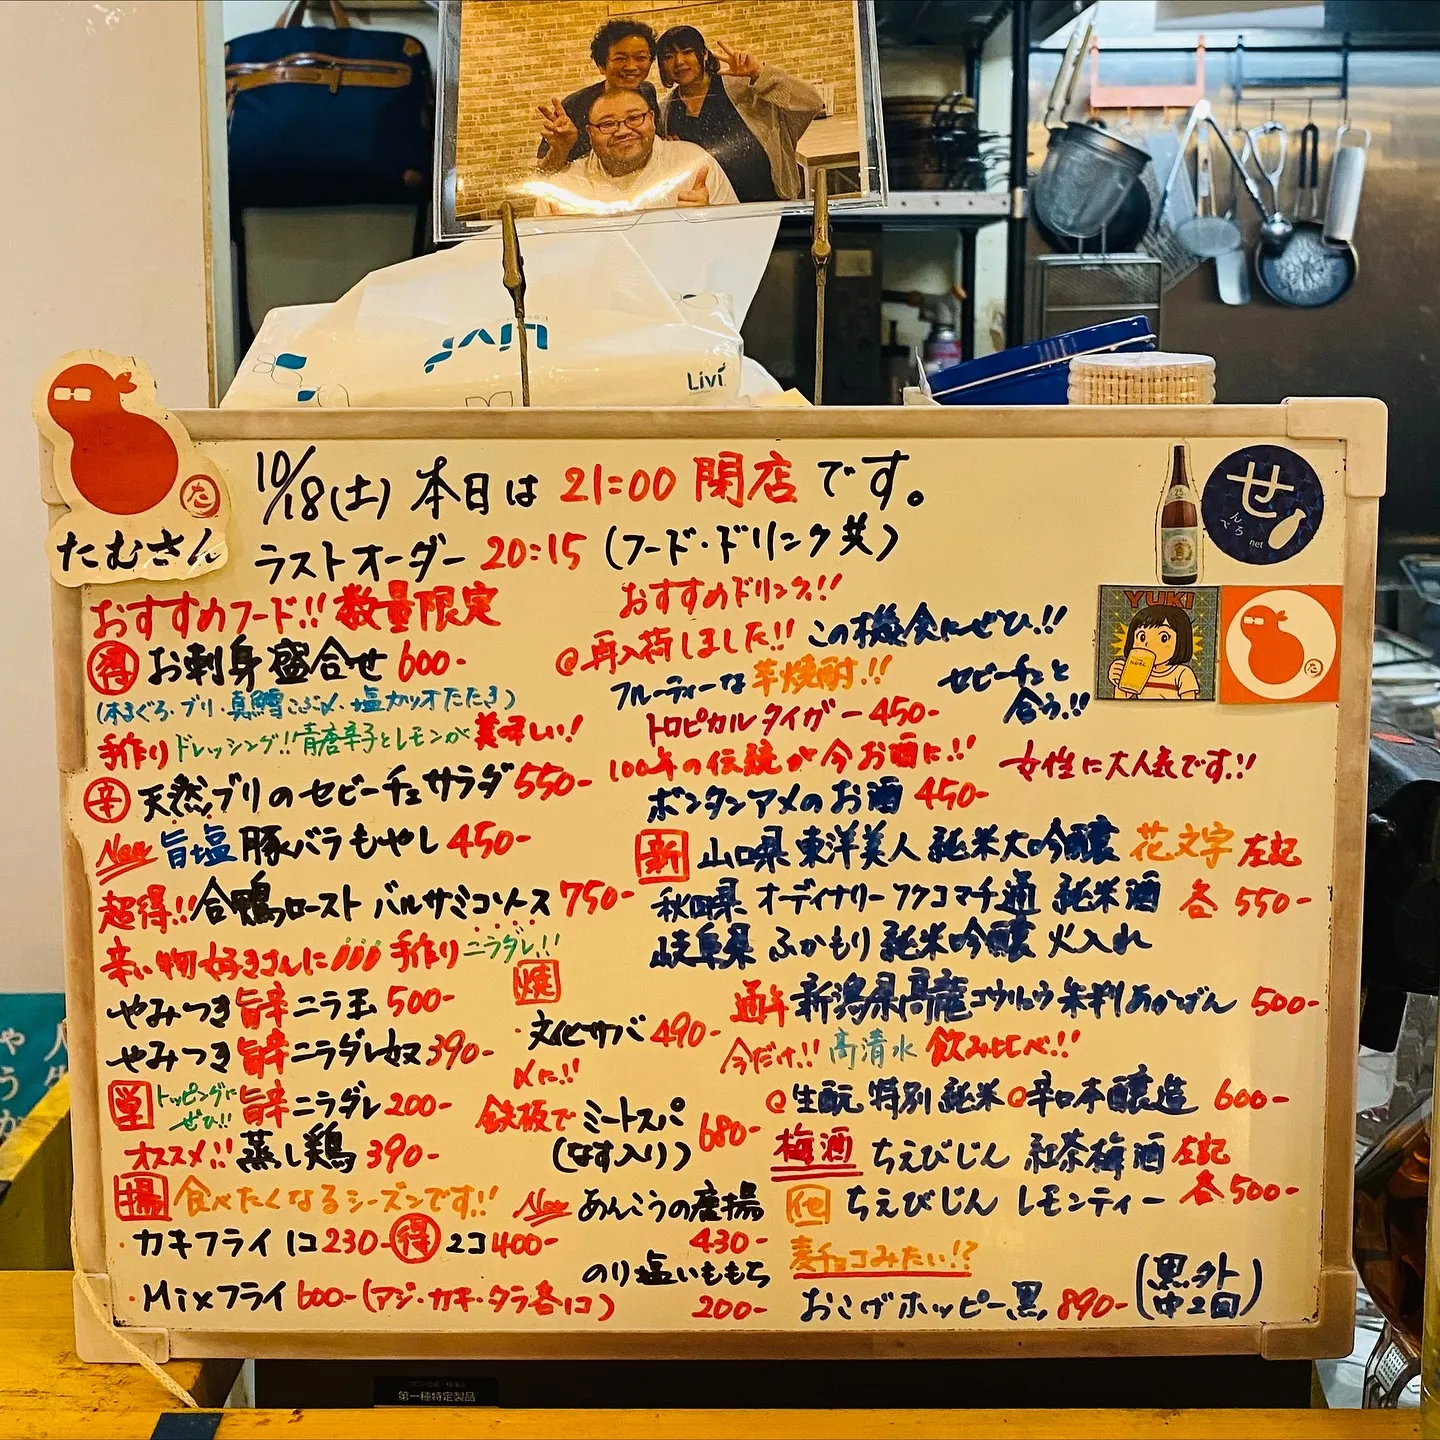 Livi
Livi
たむさん
た
10/18(土) 本日は 21:00 閉店です。
ラストオーダー 20:15 (フード・ドリンク共)
せ
んべろ
net
YUKI
た
おすすめフード!! 数量限定
得 お刺身盛合せ 600-
(本まぐろ・ブリ・真鯛こぶ〆・塩カツオたたき)
手作りドレッシング!! 青唐辛子とレモンが美味しい!
辛 天然ブリのセビーチェサラダ 550-
New 旨塩豚バラもやし 450-
超得!! 合鴨ロースト バルサミコソース 750-
辛い物好きさんに 手作りニラダレ!!
やみつき旨辛ニラ玉 500-
やみつき旨辛ニラダレ奴 390-
単 トッピングにぜひ!! 旨辛ニラダレ 200-
オススメ!! 蒸し鶏 390-
揚 食べたくなるシーズンです!!
・カキフライ 1コ 230- 得 2コ 400-
・Mixフライ 600- (アジ・カキ・タラ各1コ)
焼
・文化サバ 490-
〆に!!
鉄板で ミートスパ (なす入り) 680-
New あんこうの唐揚 430-
のり塩いももち 200-
おすすめドリンク!!
@再入荷しました!! この機会にぜひ!!
フルーティーな芋焼酎!! セビーチェと合う!!
トロピカルタイガー 450-
100年の伝統が今お酒に!! 女性に大人気です!!
ボンタンアメのお酒 450-
新 山口県 東洋美人 純米大吟醸 花文字 左記
秋田県 オーディナリーフクコマチ通 純米酒 各 550-
岐阜県 ふかもり 純米吟醸 火入れ
通年 新潟県高龍コウリュウ 朱判あかばん 500-
今だけ!! 高清水 飲み比べ!!
@生酛 特別純米 @辛口本醸造 600-
梅酒 ちえびじん 紅茶梅酒 左記
他 ちえびじん レモンティー 各500-
麦チョコみたい!?
おこげホッピー黒 890- (黒外1 中2回)
第一種特定製品